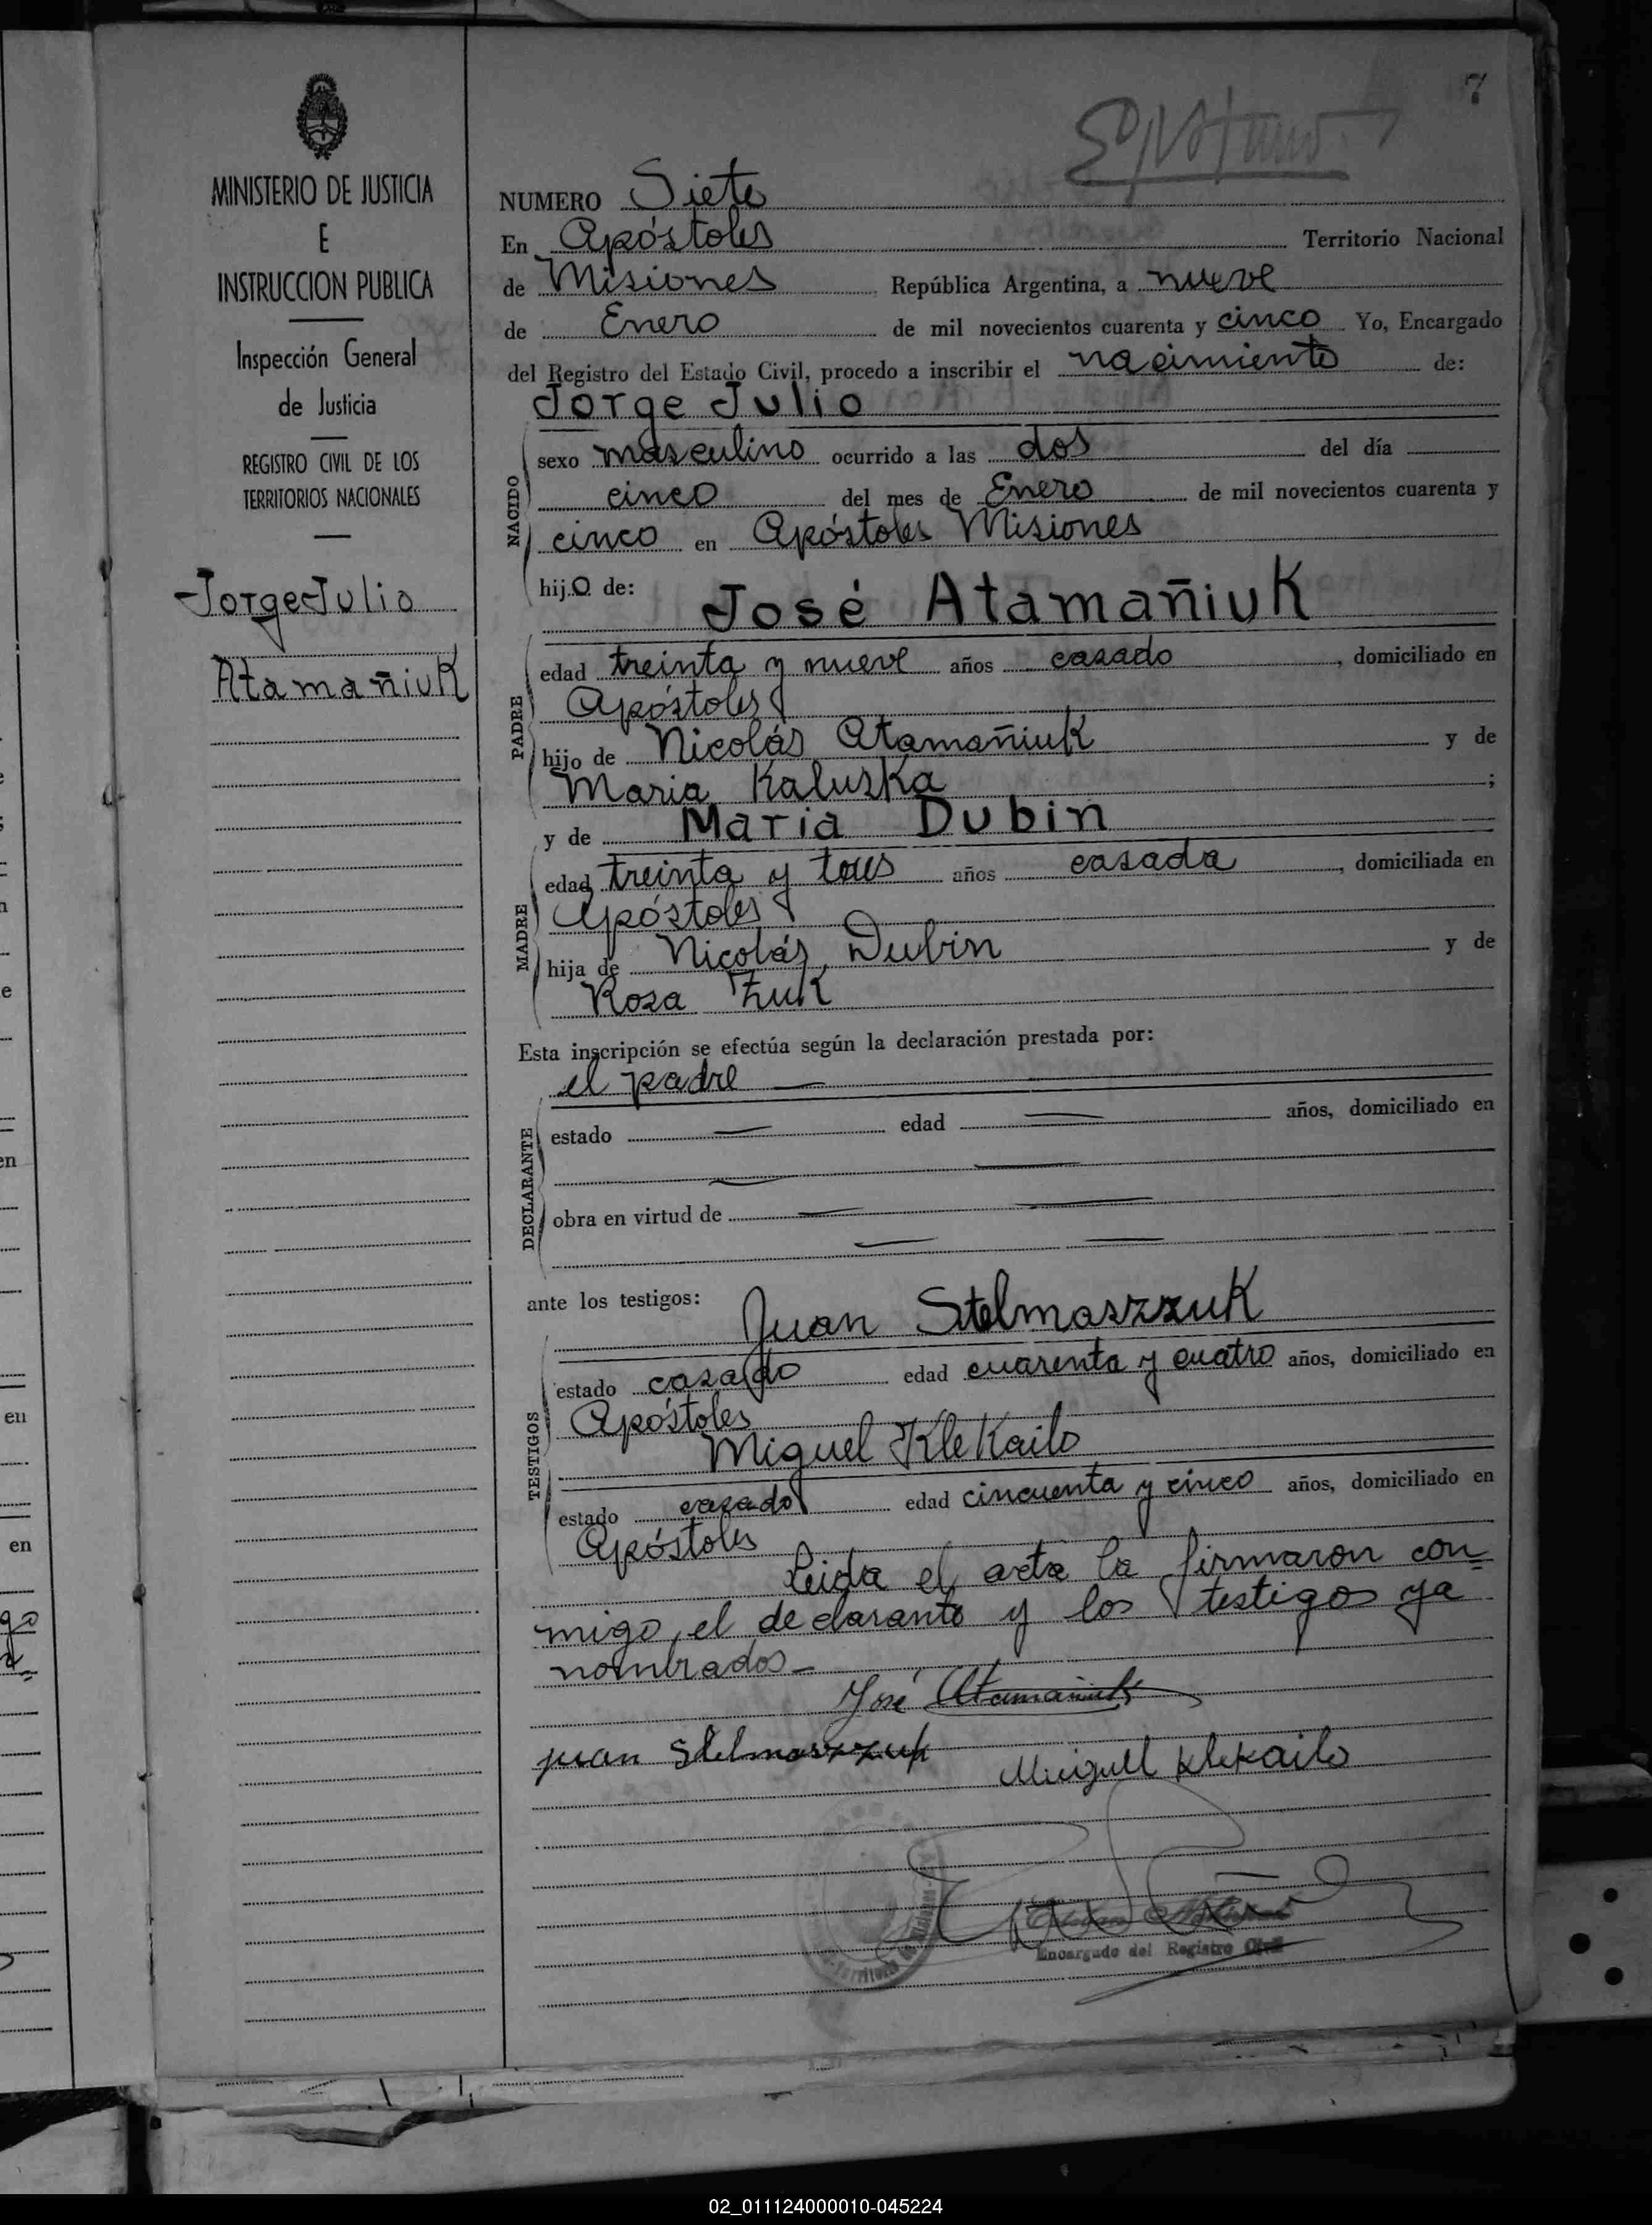 7
MINISTERIO DE JUSTICIA
E
INSTRUCCION PUBLICA
Inspección General
de Justicia
REGISTRO CIVIL DE LOS
TERRITORIOS NACIONALES
Jorge Julio
Atamañiuk
NUMERO Siete
En Apóstoles Territorio Nacional
de Misiones República Argentina, a nueve
de Enero de mil novecientos cuarenta y cinco Yo, Encargado
del Registro del Estado Civil, procedo a inscribir el nacimiento de:
Jorge Julio
NACIDO
sexo masculino ocurrido a las dos del día
cinco del mes de Enero de mil novecientos cuarenta y
cinco en Apóstoles Misiones
hijo de:
José Atamañiuk
PADRE
edad treinta y nueve años casado, domiciliado en
Apóstoles
hijo de Nicolás Atamañiuk y de
Maria Kaluska ;
y de Maria Dubin
MADRE
edad treinta y tres años casada, domiciliada en
Apóstoles
hija de Nicolás Dubin y de
Rosa Zuk
Esta inscripción se efectúa según la declaración prestada por:
el padre —
DECLARANTE
estado — edad — años, domiciliado en
— —
obra en virtud de — —
— —
ante los testigos:
Juan Stelmaszzuk
TESTIGOS
estado casado edad cuarenta y cuatro años, domiciliado en
Apóstoles
Miguel Klekailo
estado casado edad cincuenta y cinco años, domiciliado en
Apóstoles
Leida el acta la firmaron con=
migo, el declarante y los testigos ya
nombrados_
José Atamañiuk
juan Stelmaszzuk Miguell klekailo
Encargado del Registro Civil
02_011124000010-045224